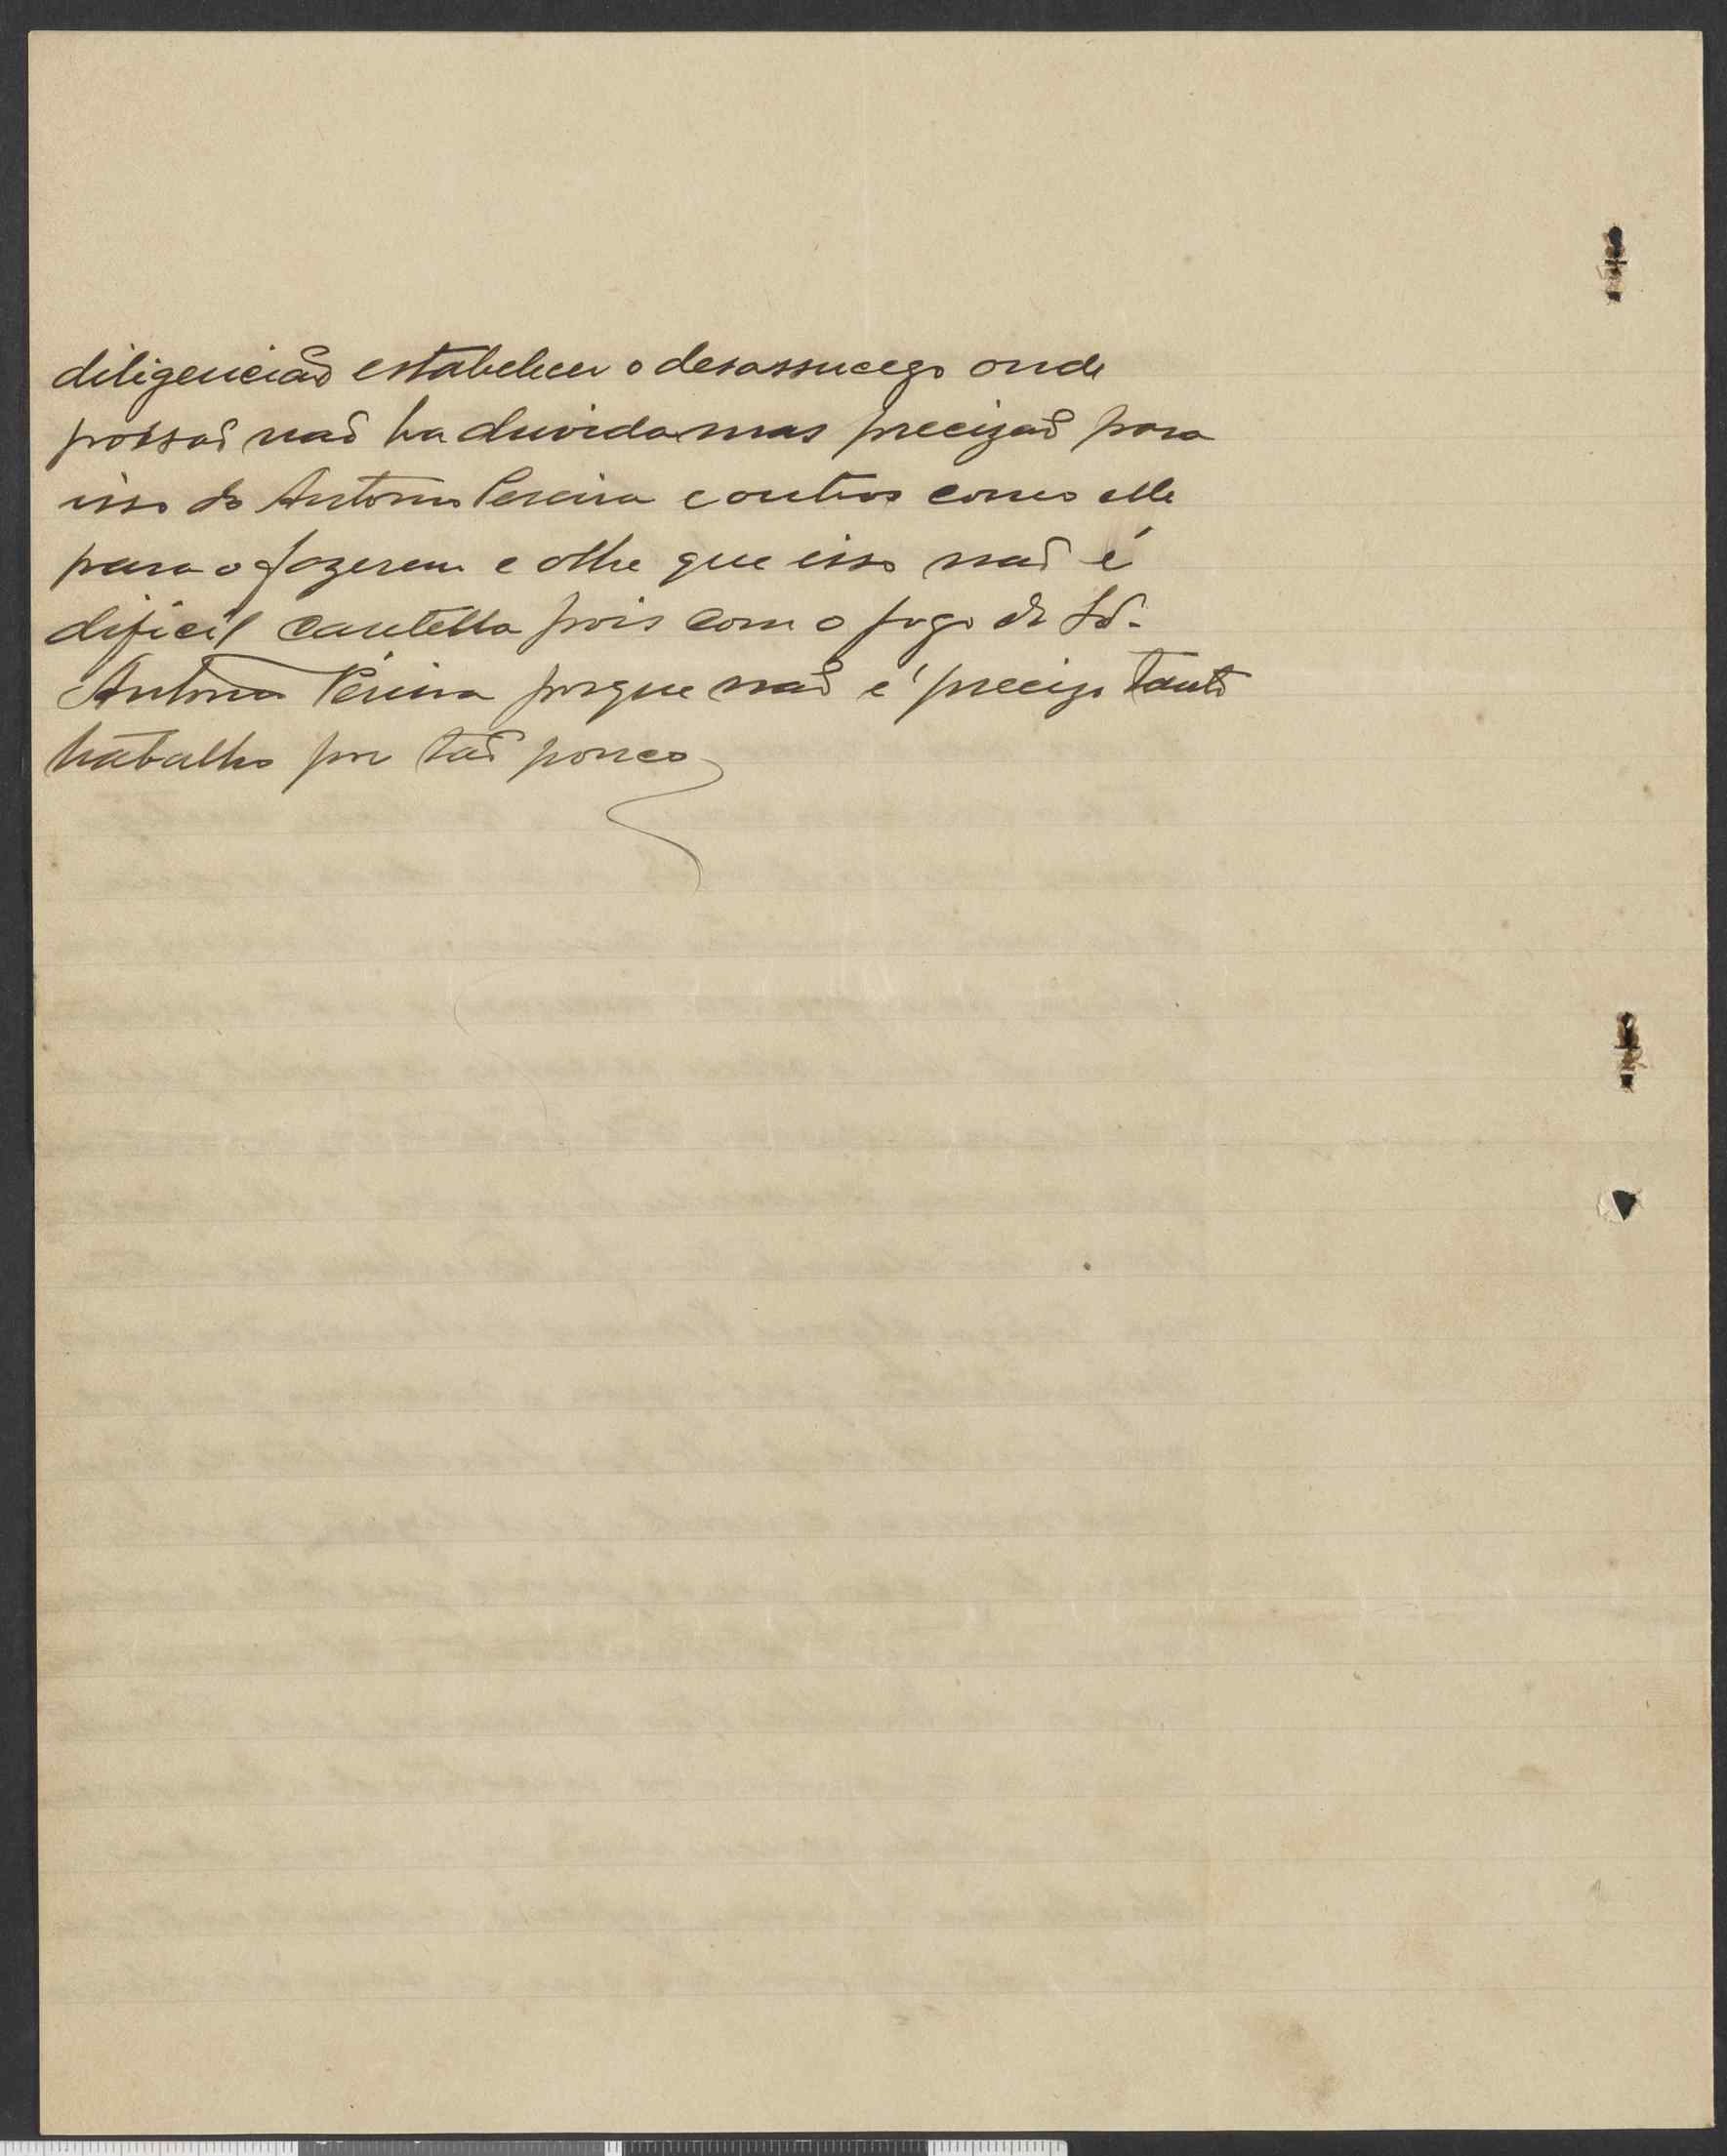 diligencião estabelecer o desassucego onde
possaõ naõ ha duvida mas precizaõ para
isso do Antonio Pereira e outros como elle
para o fazerem e olhe que isso naõ é
dificil cautella pois com o jogo do
Antonio Pereira porque naõ é precizo tanto
trabalho por taõ pouco